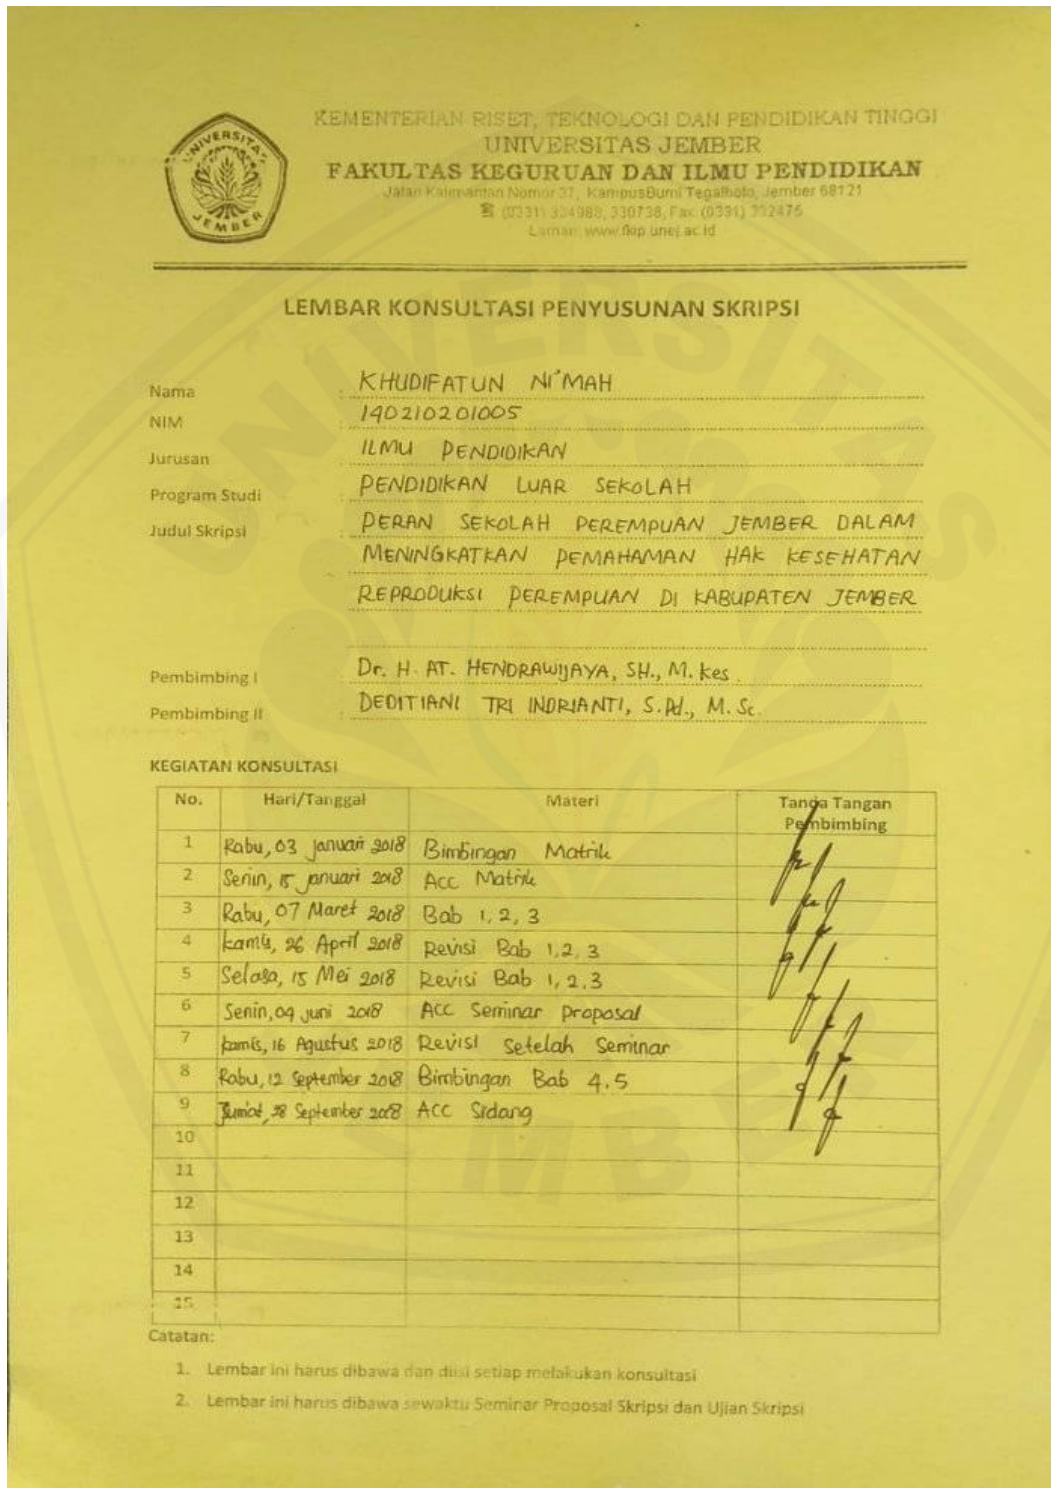 UNIVERSITAS
JEMBER
KEMENTERIAN RISET, TEKNOLOGI DAN PENDIDIKAN TINGGI
UNIVERSITAS JEMBER
FAKULTAS KEGURUAN DAN ILMU PENDIDIKAN
Jalan Kalimantan Nomor 37, KampusBumi Tegalboto, Jember 68121
(0331) 334988, 330738, Fax: (0331) 332475
Laman: www.fkip.unej.ac.id
LEMBAR KONSULTASI PENYUSUNAN SKRIPSI
Nama : KHUDIFATUN NI'MAH
NIM : 140210201005
Jurusan : ILMU PENDIDIKAN
Program Studi : PENDIDIKAN LUAR SEKOLAH
Judul Skripsi : PERAN SEKOLAH PEREMPUAN JEMBER DALAM
MENINGKATKAN PEMAHAMAN HAK KESEHATAN
REPRODUKSI PEREMPUAN DI KABUPATEN JEMBER
Pembimbing I : Dr. H. AT. HENDRAWIJAYA, SH., M. Kes.
Pembimbing II : DEDITIANI TRI INDRIANTI, S.Pd., M. Sc.
KEGIATAN KONSULTASI
No. Hari/Tanggal Materi Tanda Tangan Pembimbing
1 Rabu, 03 Januari 2018 Bimbingan Matrik
2 Senin, 15 januari 2018 Acc Matrik
3 Rabu, 07 Maret 2018 Bab 1, 2, 3
4 Kamis, 26 April 2018 Revisi Bab 1,2,3
5 Selasa, 15 Mei 2018 Revisi Bab 1,2.3
6 Senin, 04 juni 2018 ACC Seminar Proposal
7 Kamis, 16 Agustus 2018 Revisi Setelah Seminar
8 Rabu, 12 September 2018 Bimbingan Bab 4.5
9 Jumat, 28 September 2018 ACC Sidang
10
11
12
13
14
15
Catatan:
1. Lembar ini harus dibawa dan diisi setiap melakukan konsultasi
2. Lembar ini harus dibawa sewaktu Seminar Proposal Skripsi dan Ujian Skripsi